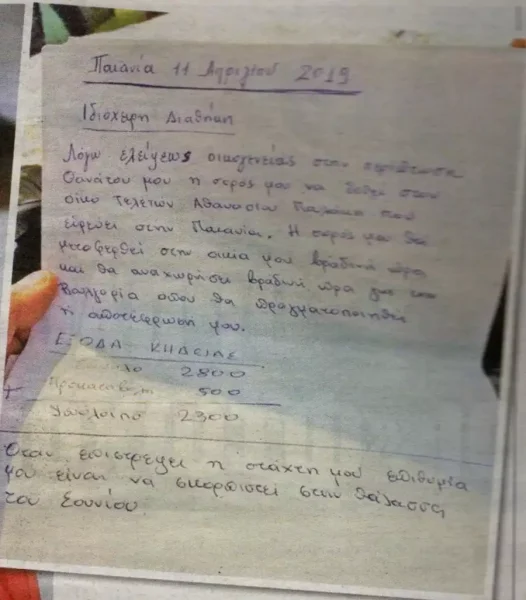 Παιανία 11 Απριλίου 2019
Ιδιόχειρη Διαθήκη
Λόγω ελλείψεως οικογενείας στην περίπτωση
θανάτου μου η σορός μου να δεθεί στον
οίκο τελετών Αθανασίου που
εδρεύει στην Παιανία. Η σορός μου θα
μεταφερθεί στην οικία μου βραδινή ώρα
και θα αναχωρήσει βραδινή ώρα για την
Βουλγαρία όπου θα πραγματοποιηθεί
η αποτέφρωση μου.
ΕΞΟΔΑ ΚΗΔΕΙΑΣ
Σύνολο 2800
Προκαταβολή 500
Υπόλοιπο 2300
Όταν επιστρέψει η στάχτη μου επιθυμία
μου είναι να σκορπιστεί στην θάλασσα
του Σουνίου.